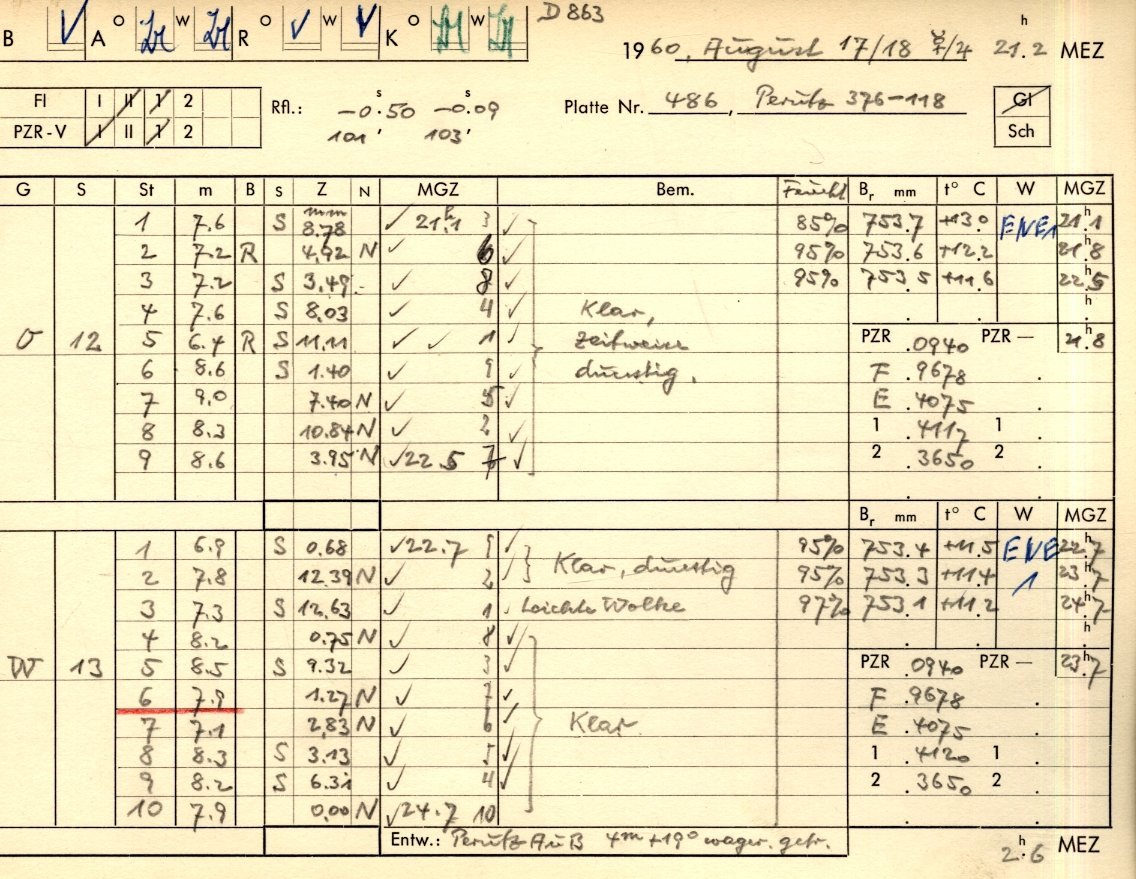 D 863
B V A O W R O V W V K O W
1960, August 17/18 21.2 h MEZ
Fl I II 1 2
PZR-V I II 1 2
Rfl.: -0.50 s -0.09 s
101' 103'
Platte Nr. 486, Perutz 376-118
Gl
Sch
G S St m B S Z N MGZ Bem. Feucht Br mm t° C W MGZ
1 7.6 S mm 8.78 ✓ 21.1 h 3 ✓ 85% 753.7 +13.0 ENE1 21.1 h
2 7.2 R 4.92 N ✓ 6 ✓ 95% 753.6 +12.2 21.8 h
3 7.2 S 3.49 ✓ 8 ✓ 95% 753.5 +11.6 22.5 h
4 7.6 S 8.03 ✓ 4 ✓ Klar, h
O 12 5 6.4 R S 11.11 ✓ ✓ 1 ✓ zeitweise PZR .0940 PZR — 21.8 h
6 8.6 S 1.40 ✓ 9 ✓ dunstig. F .9678
7 9.0 7.40 N ✓ 5 ✓ E .4075
8 8.3 10.84 N ✓ 2 ✓ 1 .4117 1
9 8.6 3.95 N ✓ 22.5 7 ✓ 2 .3650 2
Br mm t° C W MGZ
1 6.9 S 0.68 ✓ 22.7 9 ✓ 95% 753.4 +11.5 ENE 22.7 h
2 7.8 12.39 N ✓ 2 ✓ Klar, dunstig 95% 753.3 +11.4 1 23.7 h
3 7.3 S 12.63 ✓ 1 ✓ Leichte Wolke 97% 753.1 +11.2 24.7 h
4 8.2 0.75 N ✓ 8 ✓ h
W 13 5 8.5 S 9.32 ✓ 3 ✓ PZR .0940 PZR — 23.7 h
6 7.9 1.27 N ✓ 7 ✓ F .9678
7 7.1 2.83 N ✓ 6 ✓ Klar E .4075
8 8.3 S 3.13 ✓ 5 ✓ 1 .4120 1
9 8.2 S 6.31 ✓ 4 ✓ 2 .3650 2
10 7.9 0.00 N ✓ 24.7 10
Entw.: Perutz 4m +19° wager. getr. 2.6 h MEZ